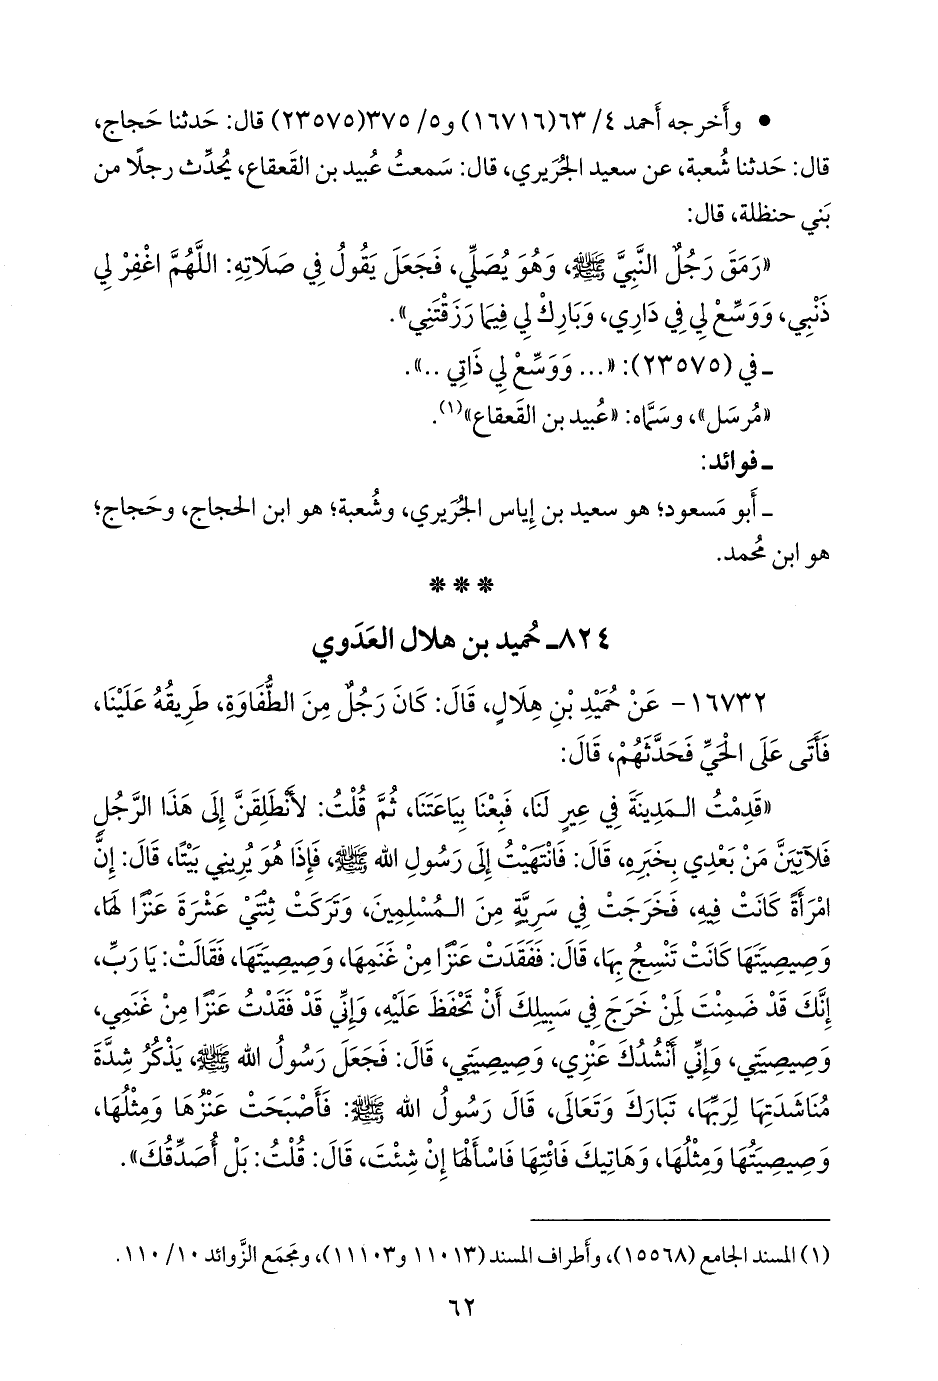 • وأَخرجه أَحمد ٤/ ٦٣(١٦٧١٦) و٥/ ٣٧٥(٢٣٥٧٥) قال: حَدثنا حَجاج،
قال: حَدثنا شُعبة، عن سعيد الجُرَيري، قال: سَمعتُ عُبيد بن القَعقاع، يُحدِّث رجلًا من
بَني حنظلة، قال:
«رَمَقَ رَجُلٌ النَّبِيَّ ﷺ، وَهُوَ يُصَلِّي، فَجَعَلَ يَقُولُ فِي صَلَاتِهِ: اللَّهُمَّ اغْفِرْ لِي
ذَنْبِي، وَوَسِّعْ لِي فِي دَارِي، وَبَارِكْ لِي فِيمَا رَزَقْتَنِي».
ـ في (٢٣٥٧٥): «... وَوَسِّعْ لِي ذَاتِي ..».
«مُرسَل»، وسَمَّاه: «عُبيد بن القَعقاع»(١).
ـ فوائد:
ـ أَبو مَسعود؛ هو سعيد بن إِياس الجُرَيري، وشُعبة؛ هو ابن الحجاج، وحَجاج؛
هو ابن مُحمد.
* * *
٨٢٤ـ حُميد بن هلال العَدَوي
١٦٧٣٢- عَنْ حُمَيْدِ بْنِ هِلَالٍ، قَالَ: كَانَ رَجُلٌ مِنَ الطُّفَاوَةِ، طَرِيقُهُ عَلَيْنَا،
فَأَتَى عَلَى الْحَيِّ فَحَدَّثَهُمْ، قَالَ:
«قَدِمْتُ الـمَدِينَةَ فِي عِيرٍ لَنَا، فَبِعْنَا بِيَاعَتَنَا، ثُمَّ قُلْتُ: لأَنْطَلِقَنَّ إِلَى هَذَا الرَّجُلِ
فَلآتِيَنَّ مَنْ بَعْدِي بِخَبَرِهِ، قَالَ: فَانْتَهَيْتُ إِلَى رَسُولِ الله ﷺ، فَإِذَا هُوَ يُرِينِي بَيْتًا، قَالَ: إِنَّ
امْرَأَةً كَانَتْ فِيهِ، فَخَرَجَتْ فِي سَرِيَّةٍ مِنَ الـمُسْلِمِينَ، وَتَرَكَتْ ثِنْتَيْ عَشْرَةَ عَنْزًا لَهَا،
وَصِيصِيَتَهَا كَانَتْ تَنْسِجُ بِهَا، قَالَ: فَفَقَدَتْ عَنْزًا مِنْ غَنَمِهَا، وَصِيصِيَتَهَا، فَقَالَتْ: يَا رَبِّ،
إِنَّكَ قَدْ ضَمِنْتَ لِمَنْ خَرَجَ فِي سَبِيلِكَ أَنْ تَحْفَظَ عَلَيْهِ، وَإِنِّي قَدْ فَقَدْتُ عَنْزًا مِنْ غَنَمِي،
وَصِيصِيَتِي، وَإِنِّي أَنْشُدُكَ عَنْزِي، وَصِيصِيَتِي، قَالَ: فَجَعَلَ رَسُولُ الله ﷺ، يَذْكُرُ شِدَّةَ
مُنَاشَدَتِهَا لِرَبِّهَا، تَبَارَكَ وَتَعَالَى، قَالَ رَسُولُ الله ﷺ: فَأَصْبَحَتْ عَنْزُهَا وَمِثْلُهَا،
وَصِيصِيَتُهَا وَمِثْلُهَا، وَهَاتِيكَ فَائْتِهَا فَاسْأَلْهَا إِنْ شِئْتَ، قَالَ: قُلْتُ: بَلْ أُصَدِّقُكَ».
(١) المسند الجامع (١٥٥٦٨)، وأَطراف المسند (١١٠١٣ و١١١٠٣)، ومَجمَع الزَّوائد ١٠/ ١١٠.
٦٢